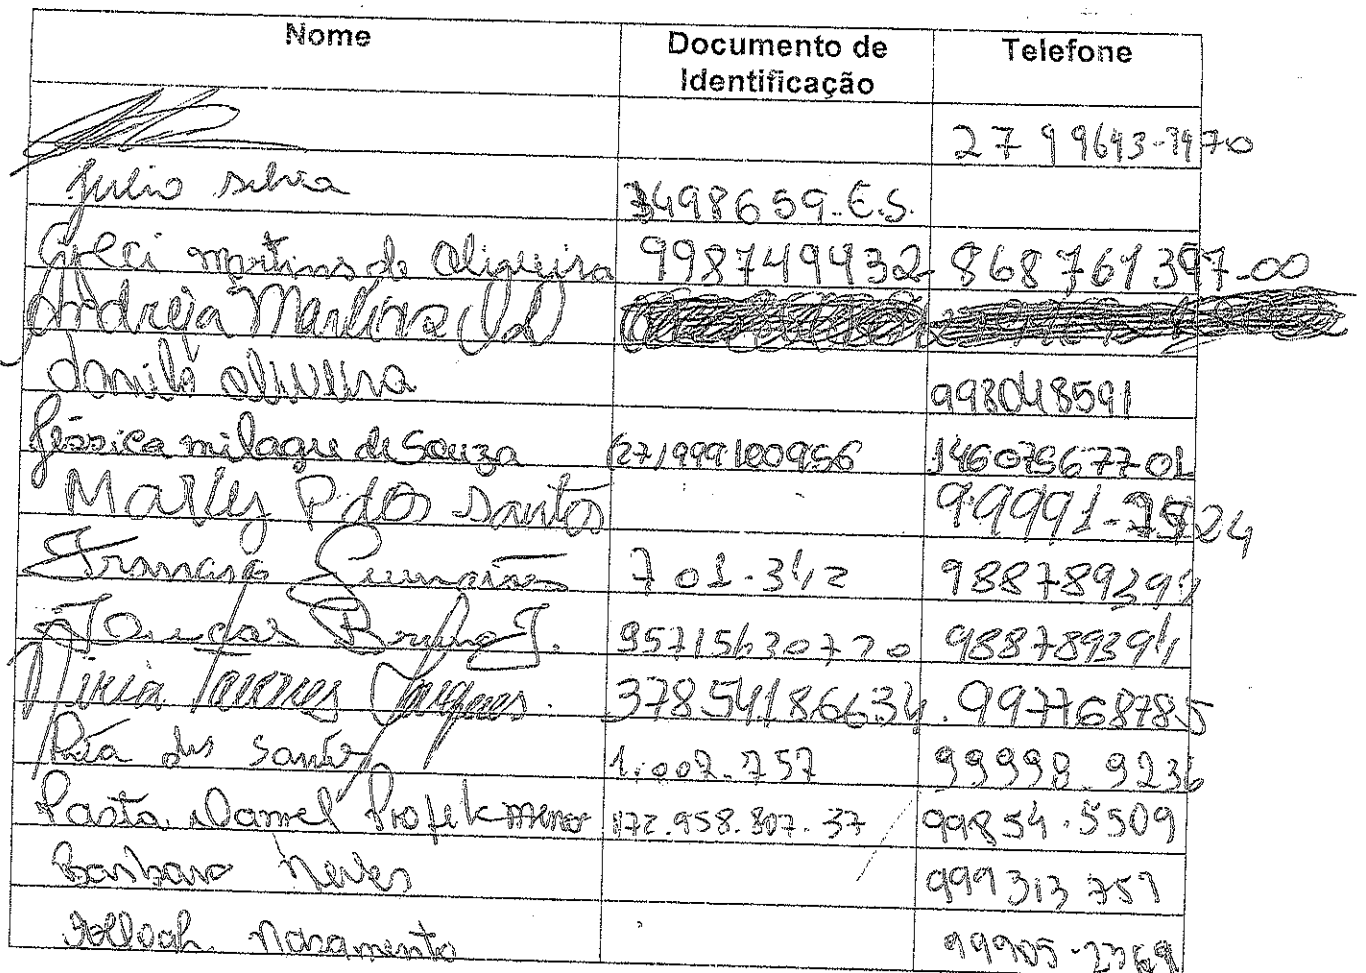 Nome Documento de Identificação Telefone
27 99643-7970
Julio silva 3498659.E.S.
Gleci martins de Oliveira 9987494932 868761397-00
Andreia Martins
danilo oliveira 998048591
Jéssica milagre de Souza (27)999100956 14607567701
Marly P. dos santos 99991-7524
Guimarães 701.342 988789394
95715630720 988789394
Miria Tavares 37854186634. 997768785
dos Santos 1.007.757 99998.9236
Daniel 172.958.307-37 99854.5509
Barbara Neves 999313759
Nascimento 99905-2769